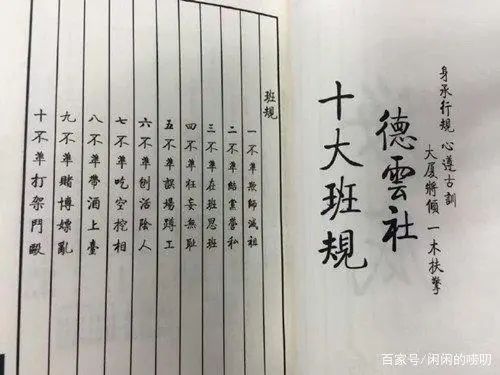 身承行規 心遵古訓
大廈將傾 一木扶擎
德雲社
十大班規
班規
一不準欺師滅祖
二不準結黨營私
三不準在班思班
四不準狂妄無恥
五不準誤場蹲工
六不準刨活陰人
七不準吃空挖相
八不準帶酒上臺
九不準賭博嫖亂
十不準打架鬥毆
百家号/闲闲的唠叨